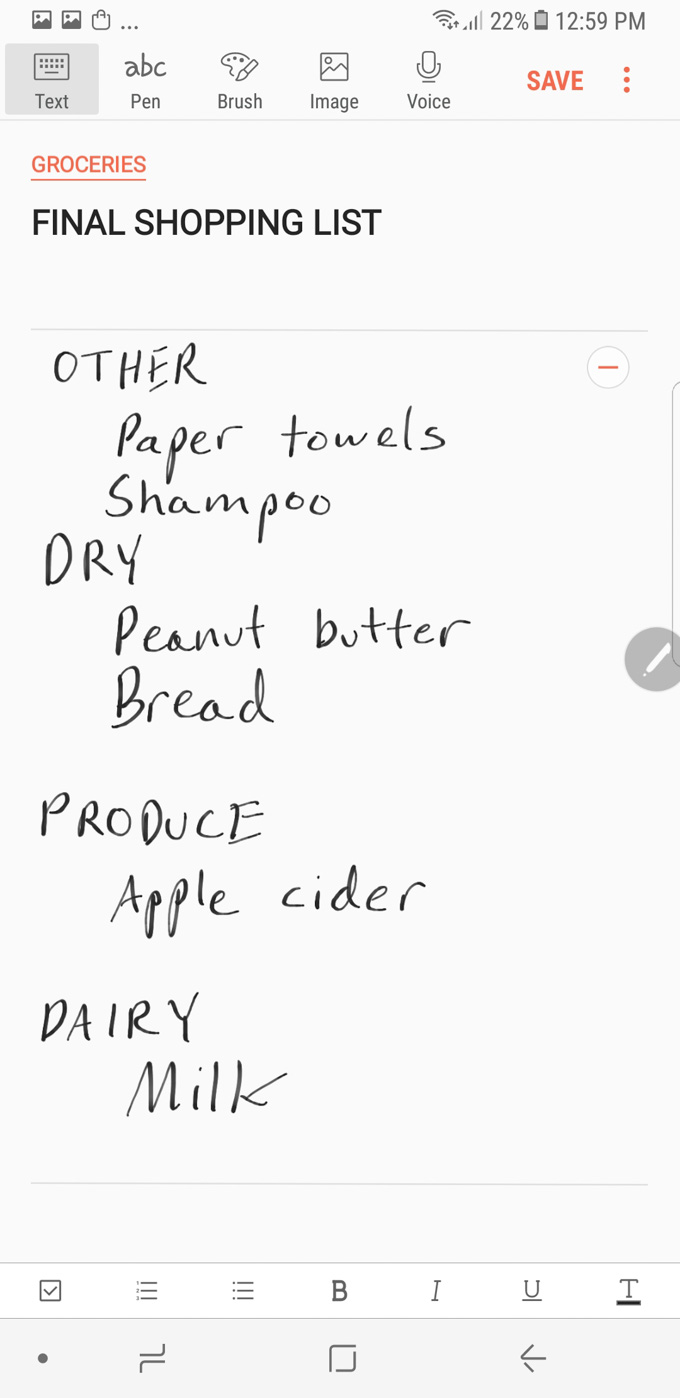 ... 22% 12:59 PM
abc
Text Pen Brush Image Voice SAVE
GROCERIES
FINAL SHOPPING LIST
OTHER
Paper towels
Shampoo
DRY
Peanut butter
Bread
PRODUCE
Apple cider
DAIRY
Milk
B I U T